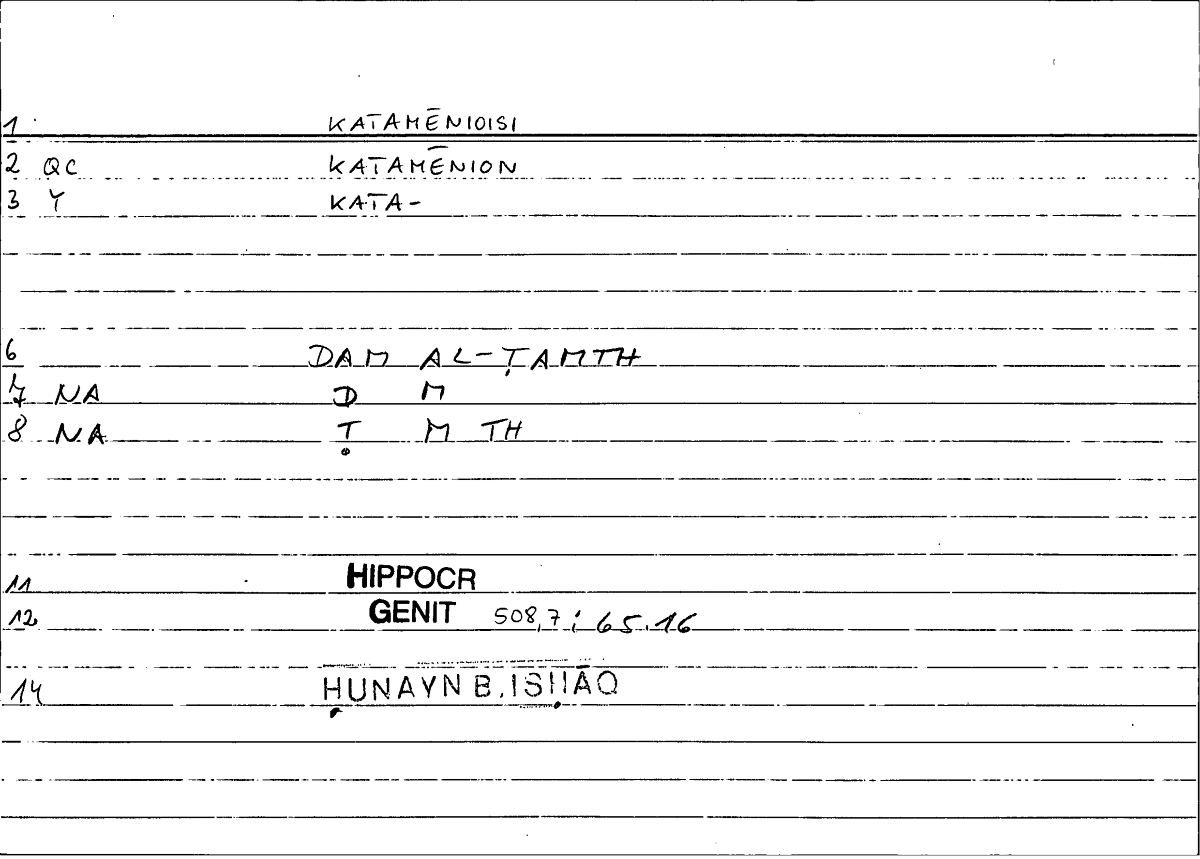 1 KATAMĒNIOISI
2 QC KATAMĒNION
3 Y KATA-
6 DAM AL-ṬAMTH
7 NA D M
8 NA Ṭ M TH
11 HIPPOCR
12 GENIT 508,7; 65.16
14 ḤUNAYN B. ISḤĀQ